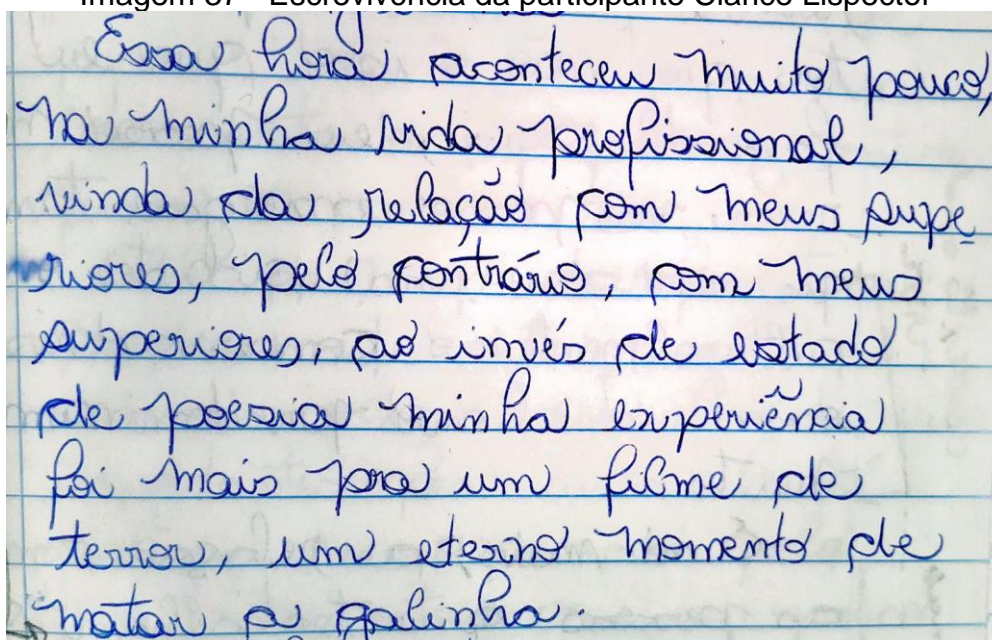 Imagem 37 - Escrevivência da participante Clarice Lispector
Essa hora aconteceu muito pouco,
na minha vida profissional,
vinda da relação com meus supe
riores, pelo contrário, com meus
superiores, ao invés de estado
de poesia minha experiência
foi mais pra um filme de
terror, um eterno momento de
matar a galinha.